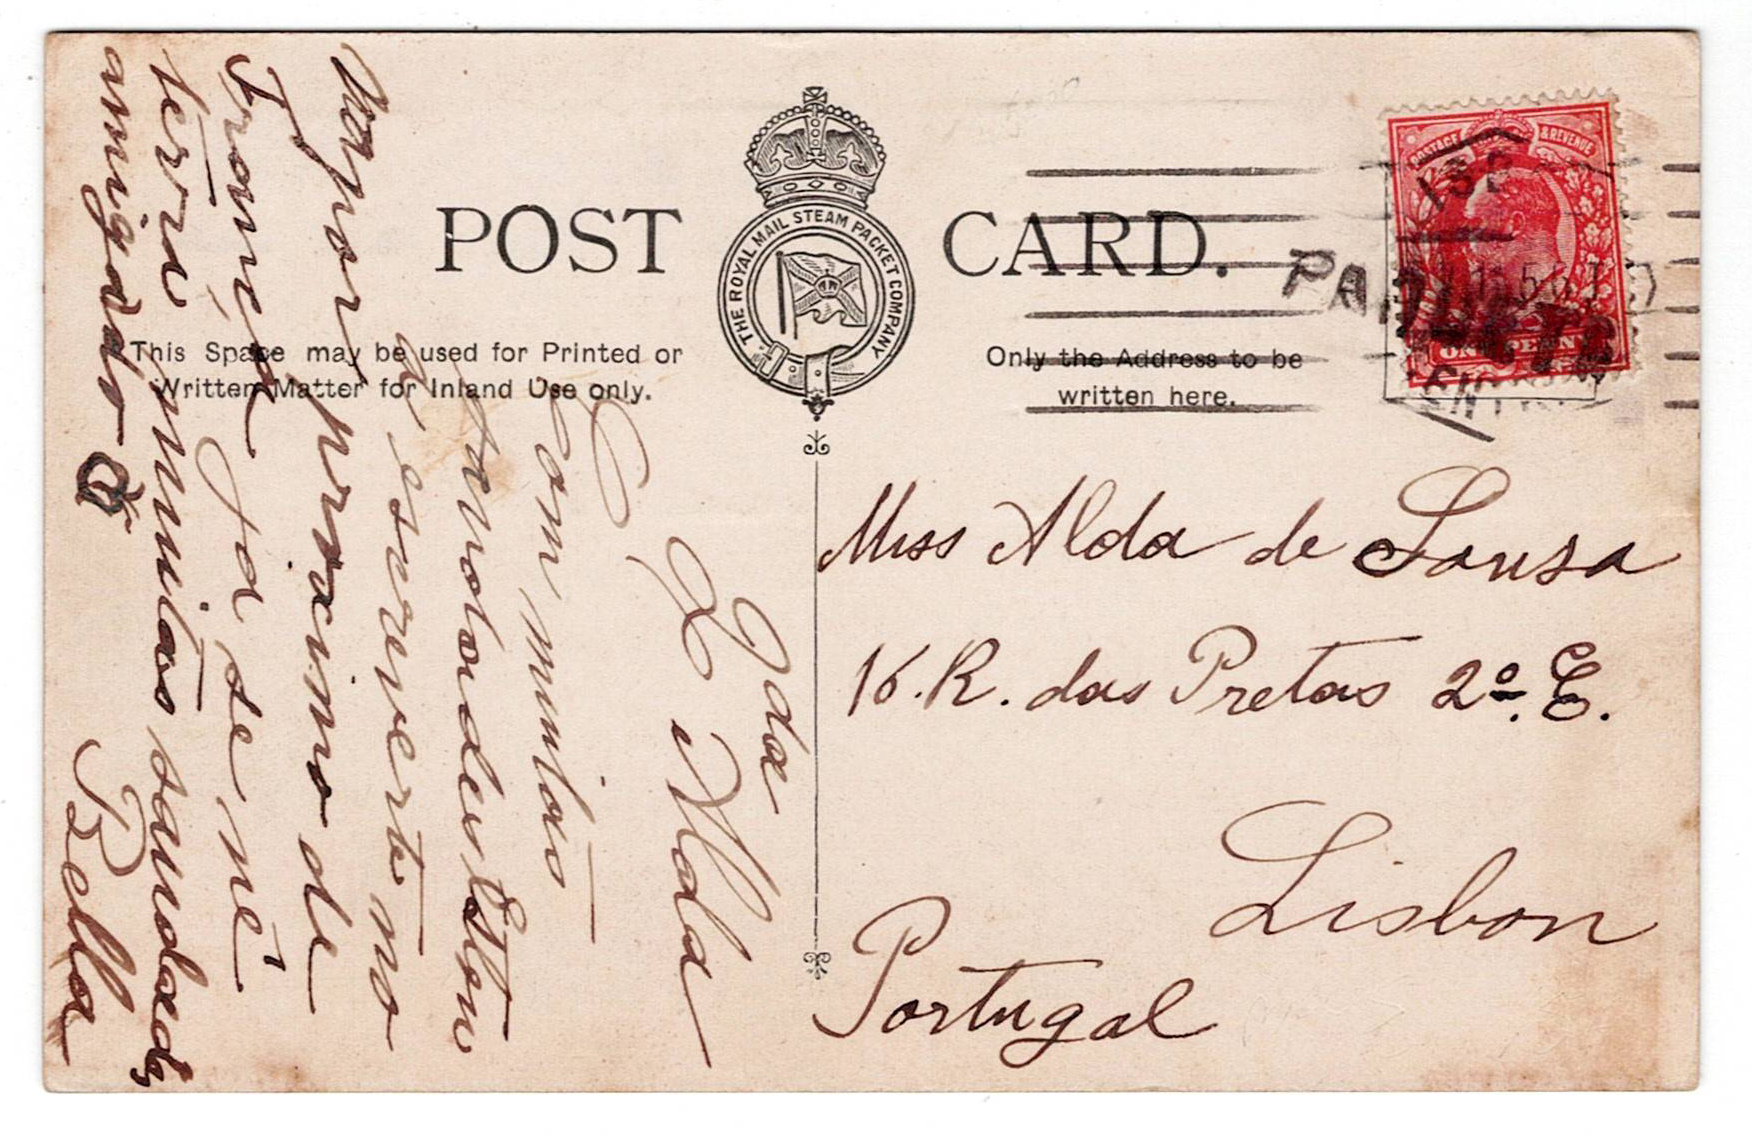 POST CARD.
THE ROYAL MAIL STEAM PACKET COMPANY
This Space may be used for Printed or
Written Matter for Inland Use only.
Only the Address to be
written here.
POSTAGE & REVENUE
ONE PENNY
PAQUETE
Miss Alda de Sousa
16. R. das Pretas 2º. E.
Lisbon
Portugal
Ida
Alda
Com muitas
Estou
a escrever-te no
vapor proximo de
França. Ja se me
terra muitas saudades
amigado
Bella